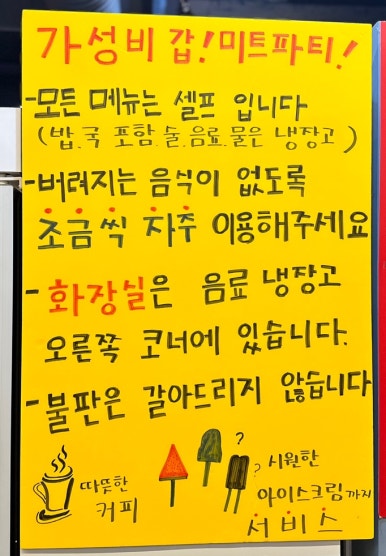 가성비 갑! 미트파티!
-모든 메뉴는 셀프 입니다
(밥.국 포함.술.음료.물은 냉장고)
-버려지는 음식이 없도록
조금씩 자주 이용해주세요
- 화장실은 음료 냉장고
오른쪽 코너에 있습니다.
-불판은 갈아드리지 않습니다
따뜻한
커피
? ?
시원한
아이스크림까지
서비스